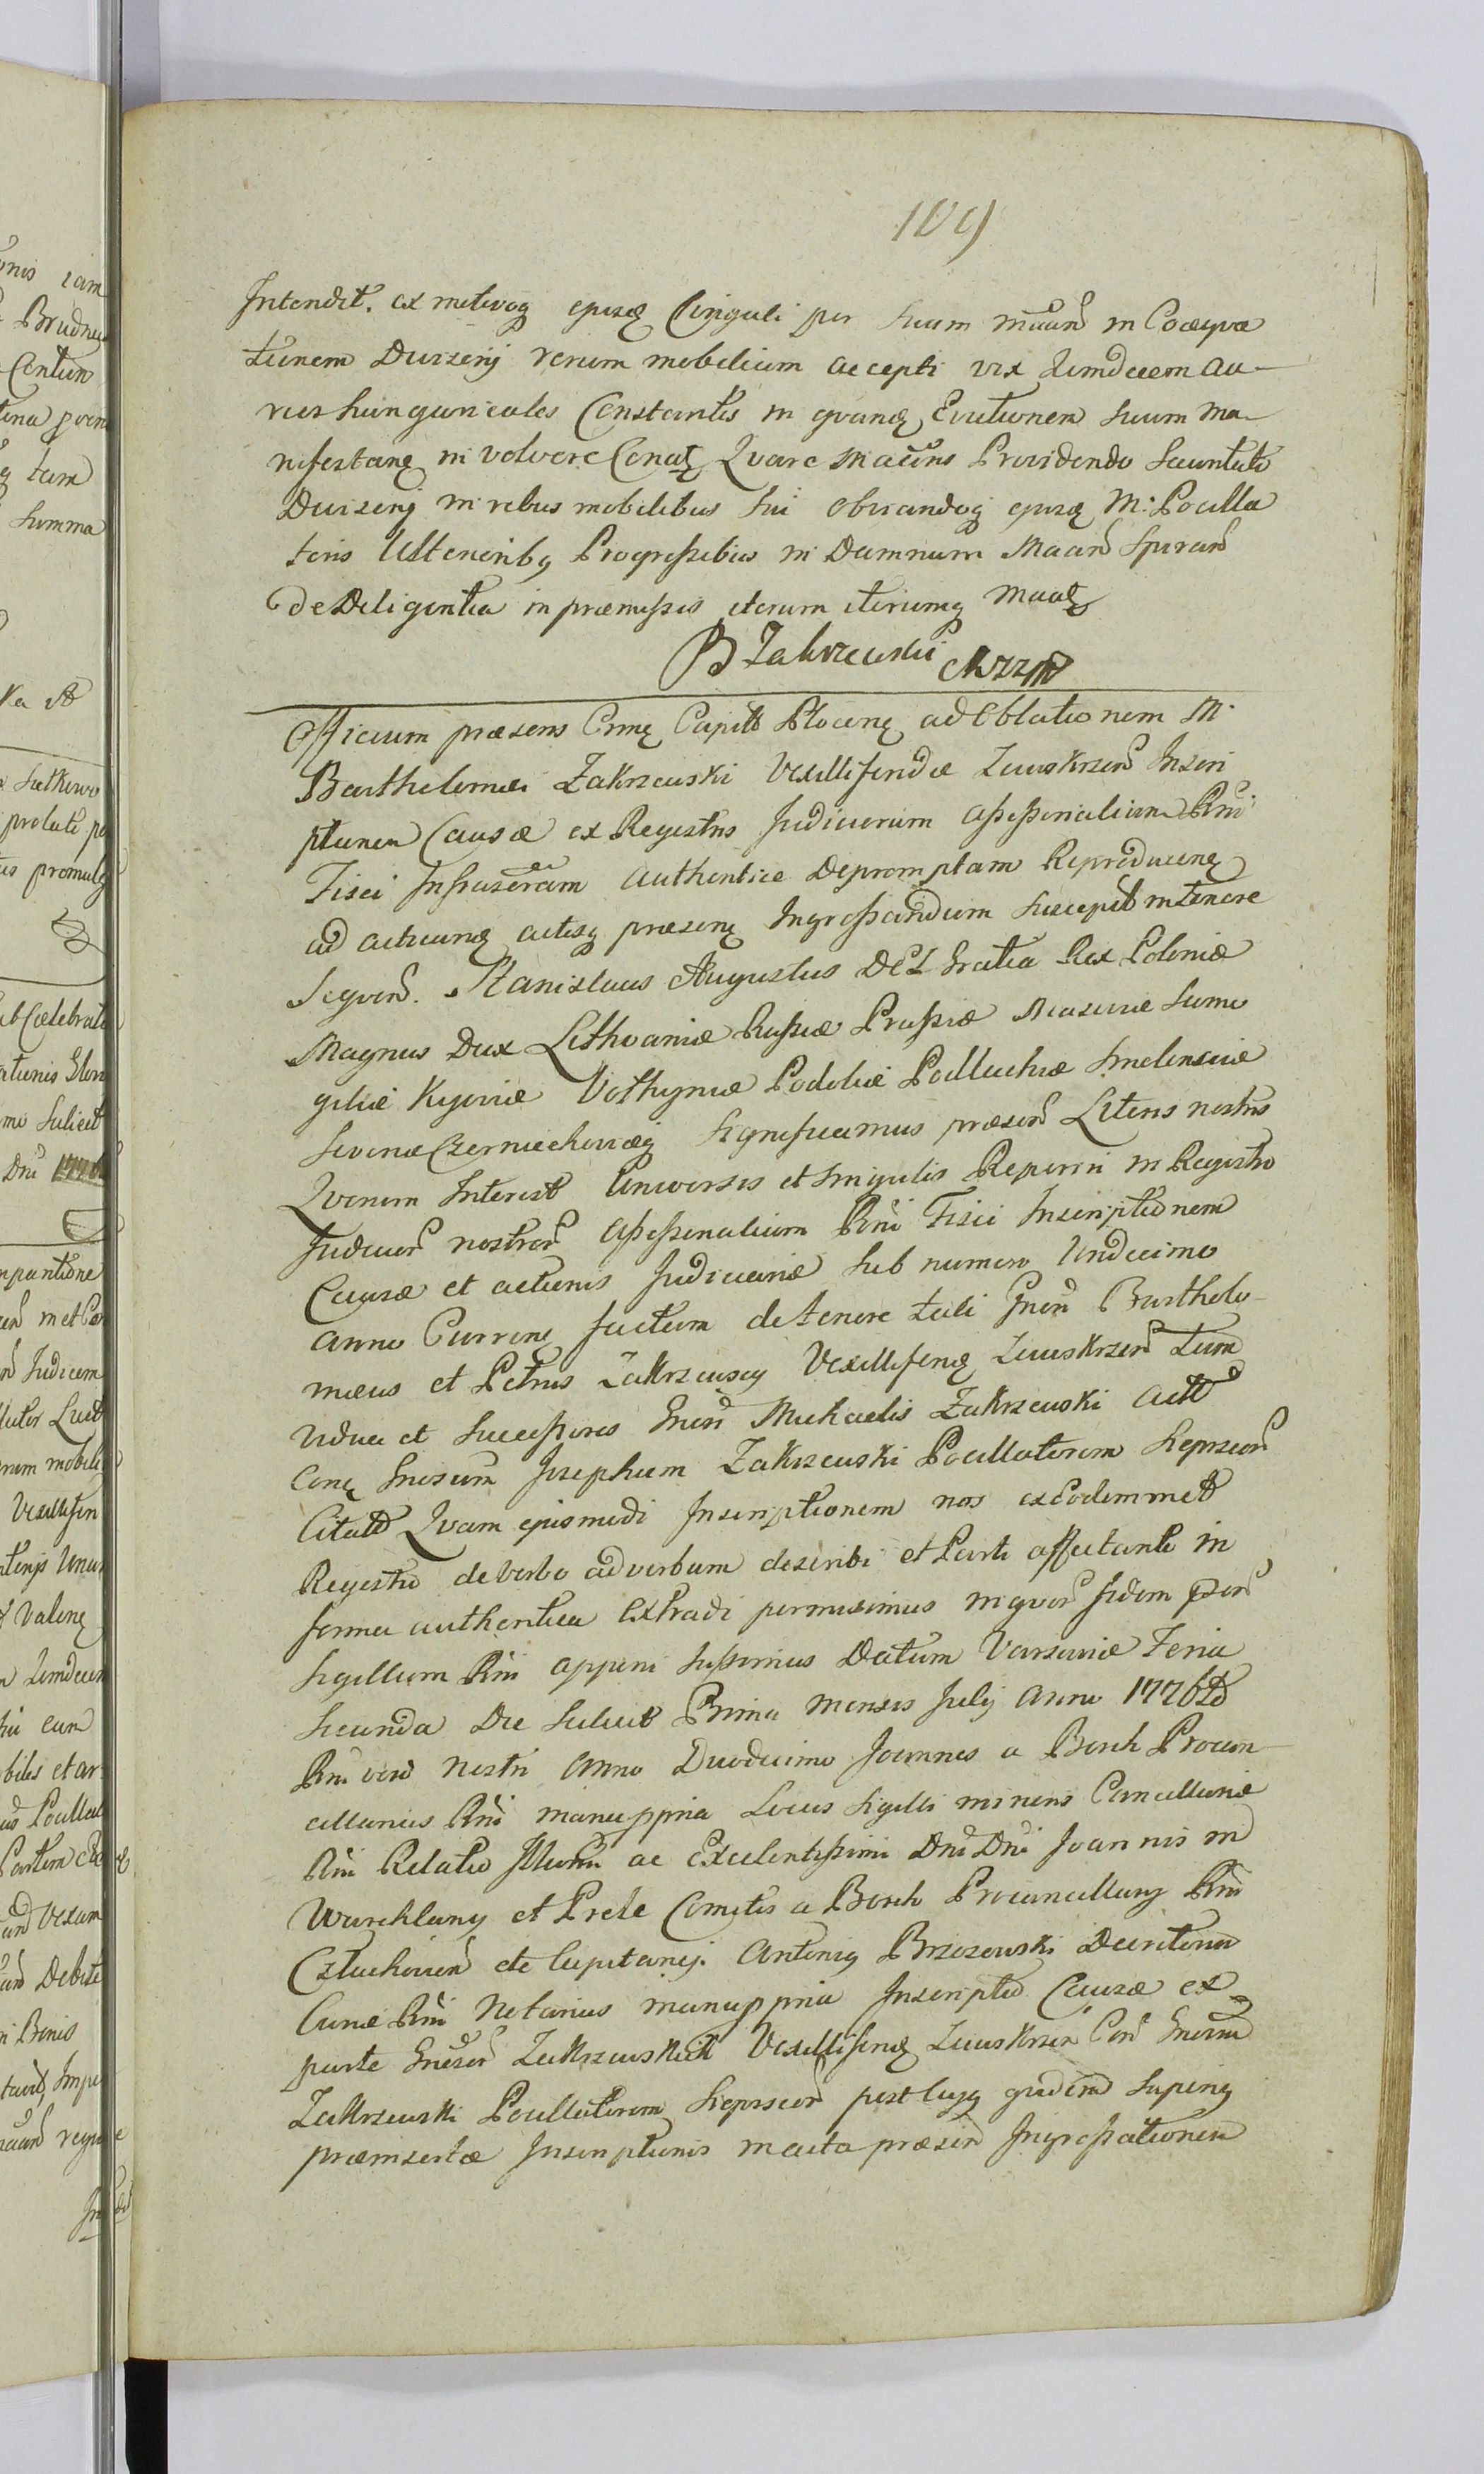 109
Intendit. ex motivoq ejusq Cinguli per suum maan̄d in Coæqva
tionem Duizerij rerum mobilium accepti vix Qvindecem au-
reos hungaricales Constantis in qvanq Evictionem suum ma-
nifestanq involvere Conatq Qvare Maan̄s Providendo
Duizerij in rebus mobilibus sui obviandoq ejusq M: Pocilla
toris Ulterioribq Progreſsibus in Damnum Maan̄d
de Diligentia in præmiſsis iterum iterumq Maatq
B Zakrzewski
Officium præsens Crnsq Capitt Plocenq ad Oblationem M.
Bartholomæi Zakrzewski Vexilliferidæ Zawskrzen̄ Inscri
ptionem Causæ ex Registris Judiciorum Aſseſsorialium Rn̄i
Fisci Infrascram Authentice Depromptam Reproducenq
ad acticanq actisq præsenq Ingroſsandum Suscepit in tenore
Seqven̄. Stanislaus Augustus DEI Gratia Rex Poloniæ
Magnus Dux Lithvaniæ Ruſsiæ Pruſsiæ Masoviæ Samo
gitiæ Kyoviæ Volhyniæ Podoliæ Podlachiæ Smolensciæ
Severiæ Czerniechoviæq Significamus præsen̄ Literis nostris
Qvorum Interest Universis et Singulis Reperiri in Registro
Judicior̄ nostror̄ Aſseſsorialium Rn̄i Fisci Inscriptionem
Causæ et actionis Judiciariæ Sub numero Undecimo
anno Currenq factam de tenore tali Gnēn Bartholo-
mæus et Petrus Zakrzewscy Vexilliferiq Zawskrzen̄ tum
vidua et Succeſsores Gnēn Michaelis Zakrzewski Actt
Conq Gnosum Josephum Zakrzewski Pocillatorem Sieprscen̄
Citatt Qvam ejusmodi Inscriptionem nos ex Eodemmett
Registro de verbo ad verbum describi et Parti affectanti in
forma authentica Extradi permisimus in qvor̄ fidem præn̄
Sigillum Rn̄i appeni Juſsimus Datum Varsaviæ Feria
Secunda Die Scilicet Prima Mensis Julij Anno 1776to
Rn̄i vero Nostri Anno Duodecimo Joannes a Borch Procan-
cellarius Rn̄i manuppria Locus Sigilli minoris Cancellariæ
Rn̄i Relatio Illmi ac Excelentiſsimi Dn̄i Dn̄i Joannis in
Warcklany et Prele Comitis a Borch Procancellarij Rn̄i
Człuchovien̄ etc Capitanej. Antonig Brzozowski Decretorum
Curiæ Rn̄i Notarius manuppria Inscriptio Causæ ex
parte Gnēsor̄ Zakrzewskich Vexilliferiq Zawskrzen̄ Con̄ Gnosum
Zakrzewski Pocillatorem Sieprscen̄ post cujq qvidem Superiq
præinsertæ Inscriptionis in acta præsen̄ Ingroſsationem